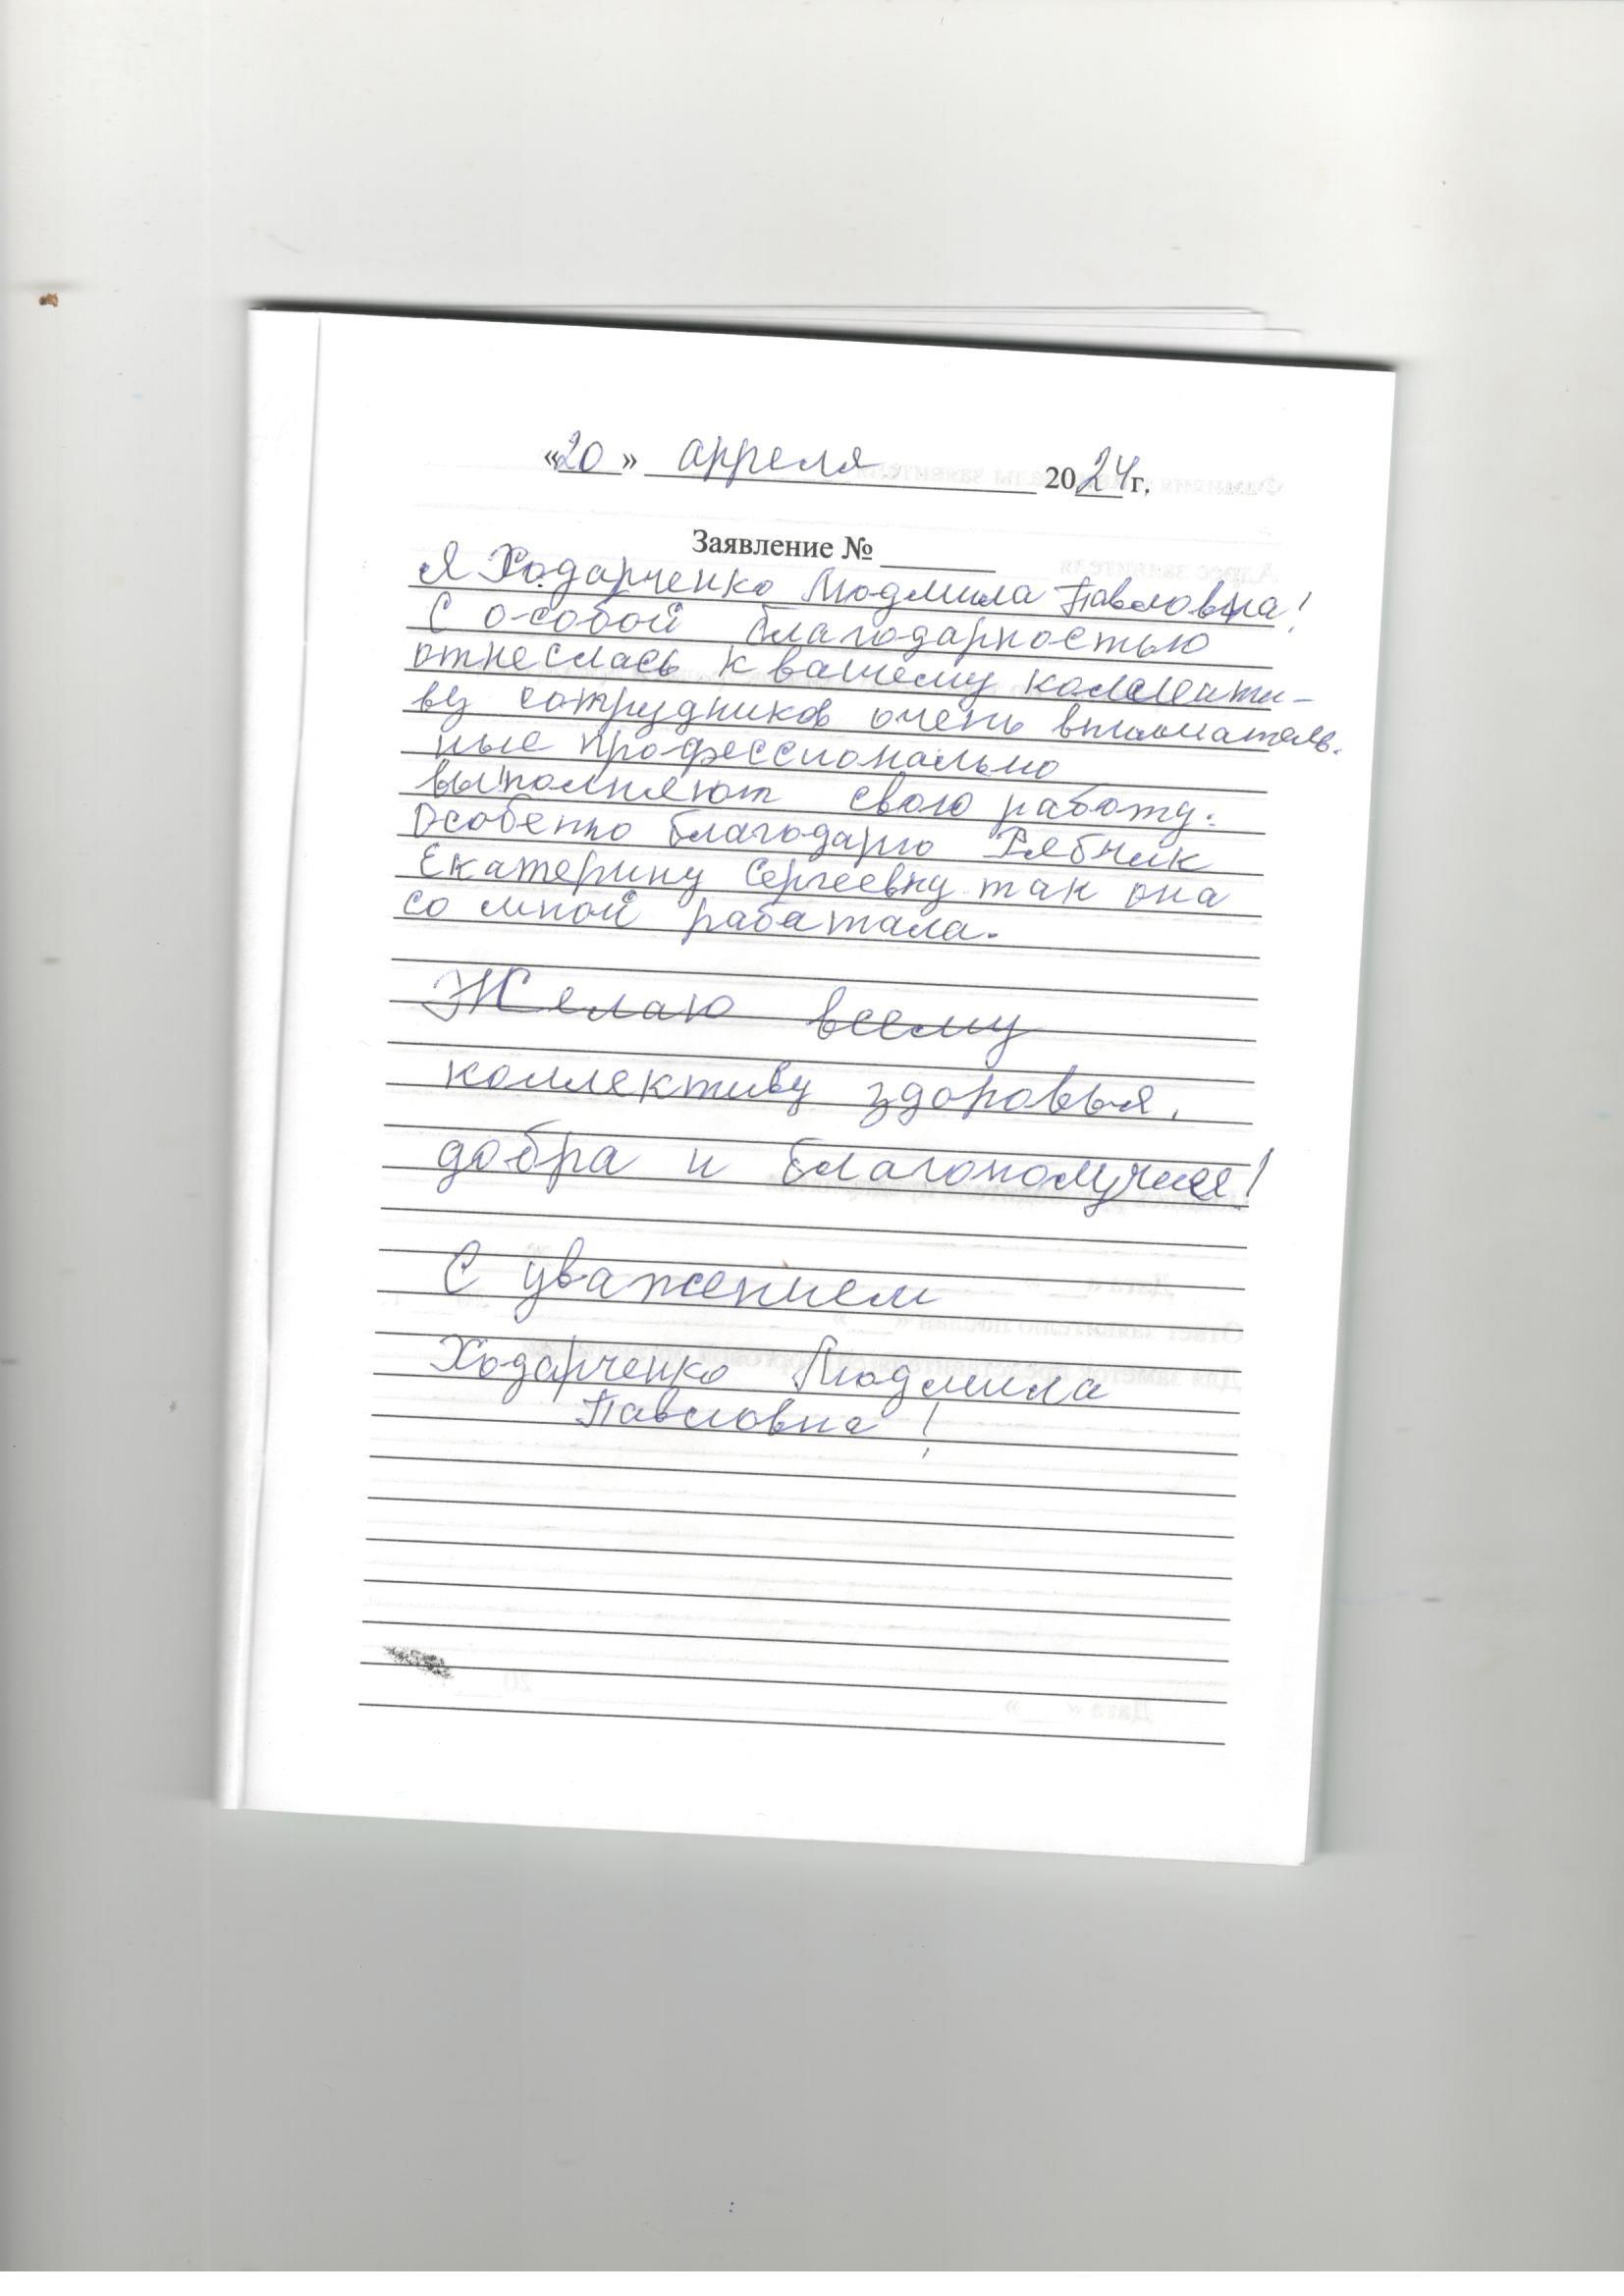 «20» апреля 2024 г.
Заявление № ______
Я Ходарченко Людмила Павловна!
С особой благодарностью
отнеслась к вашему коллекти-
ву сотрудников очень вниматель-
ные профессионально
выполняют свою работу.
Особенно благодарю Рябчик
Екатерину Сергеевну так она
со мной работала.
Желаю всему
коллективу здоровья,
добра и благополучия!
С уважением
Ходарченко Людмила
Павловна!